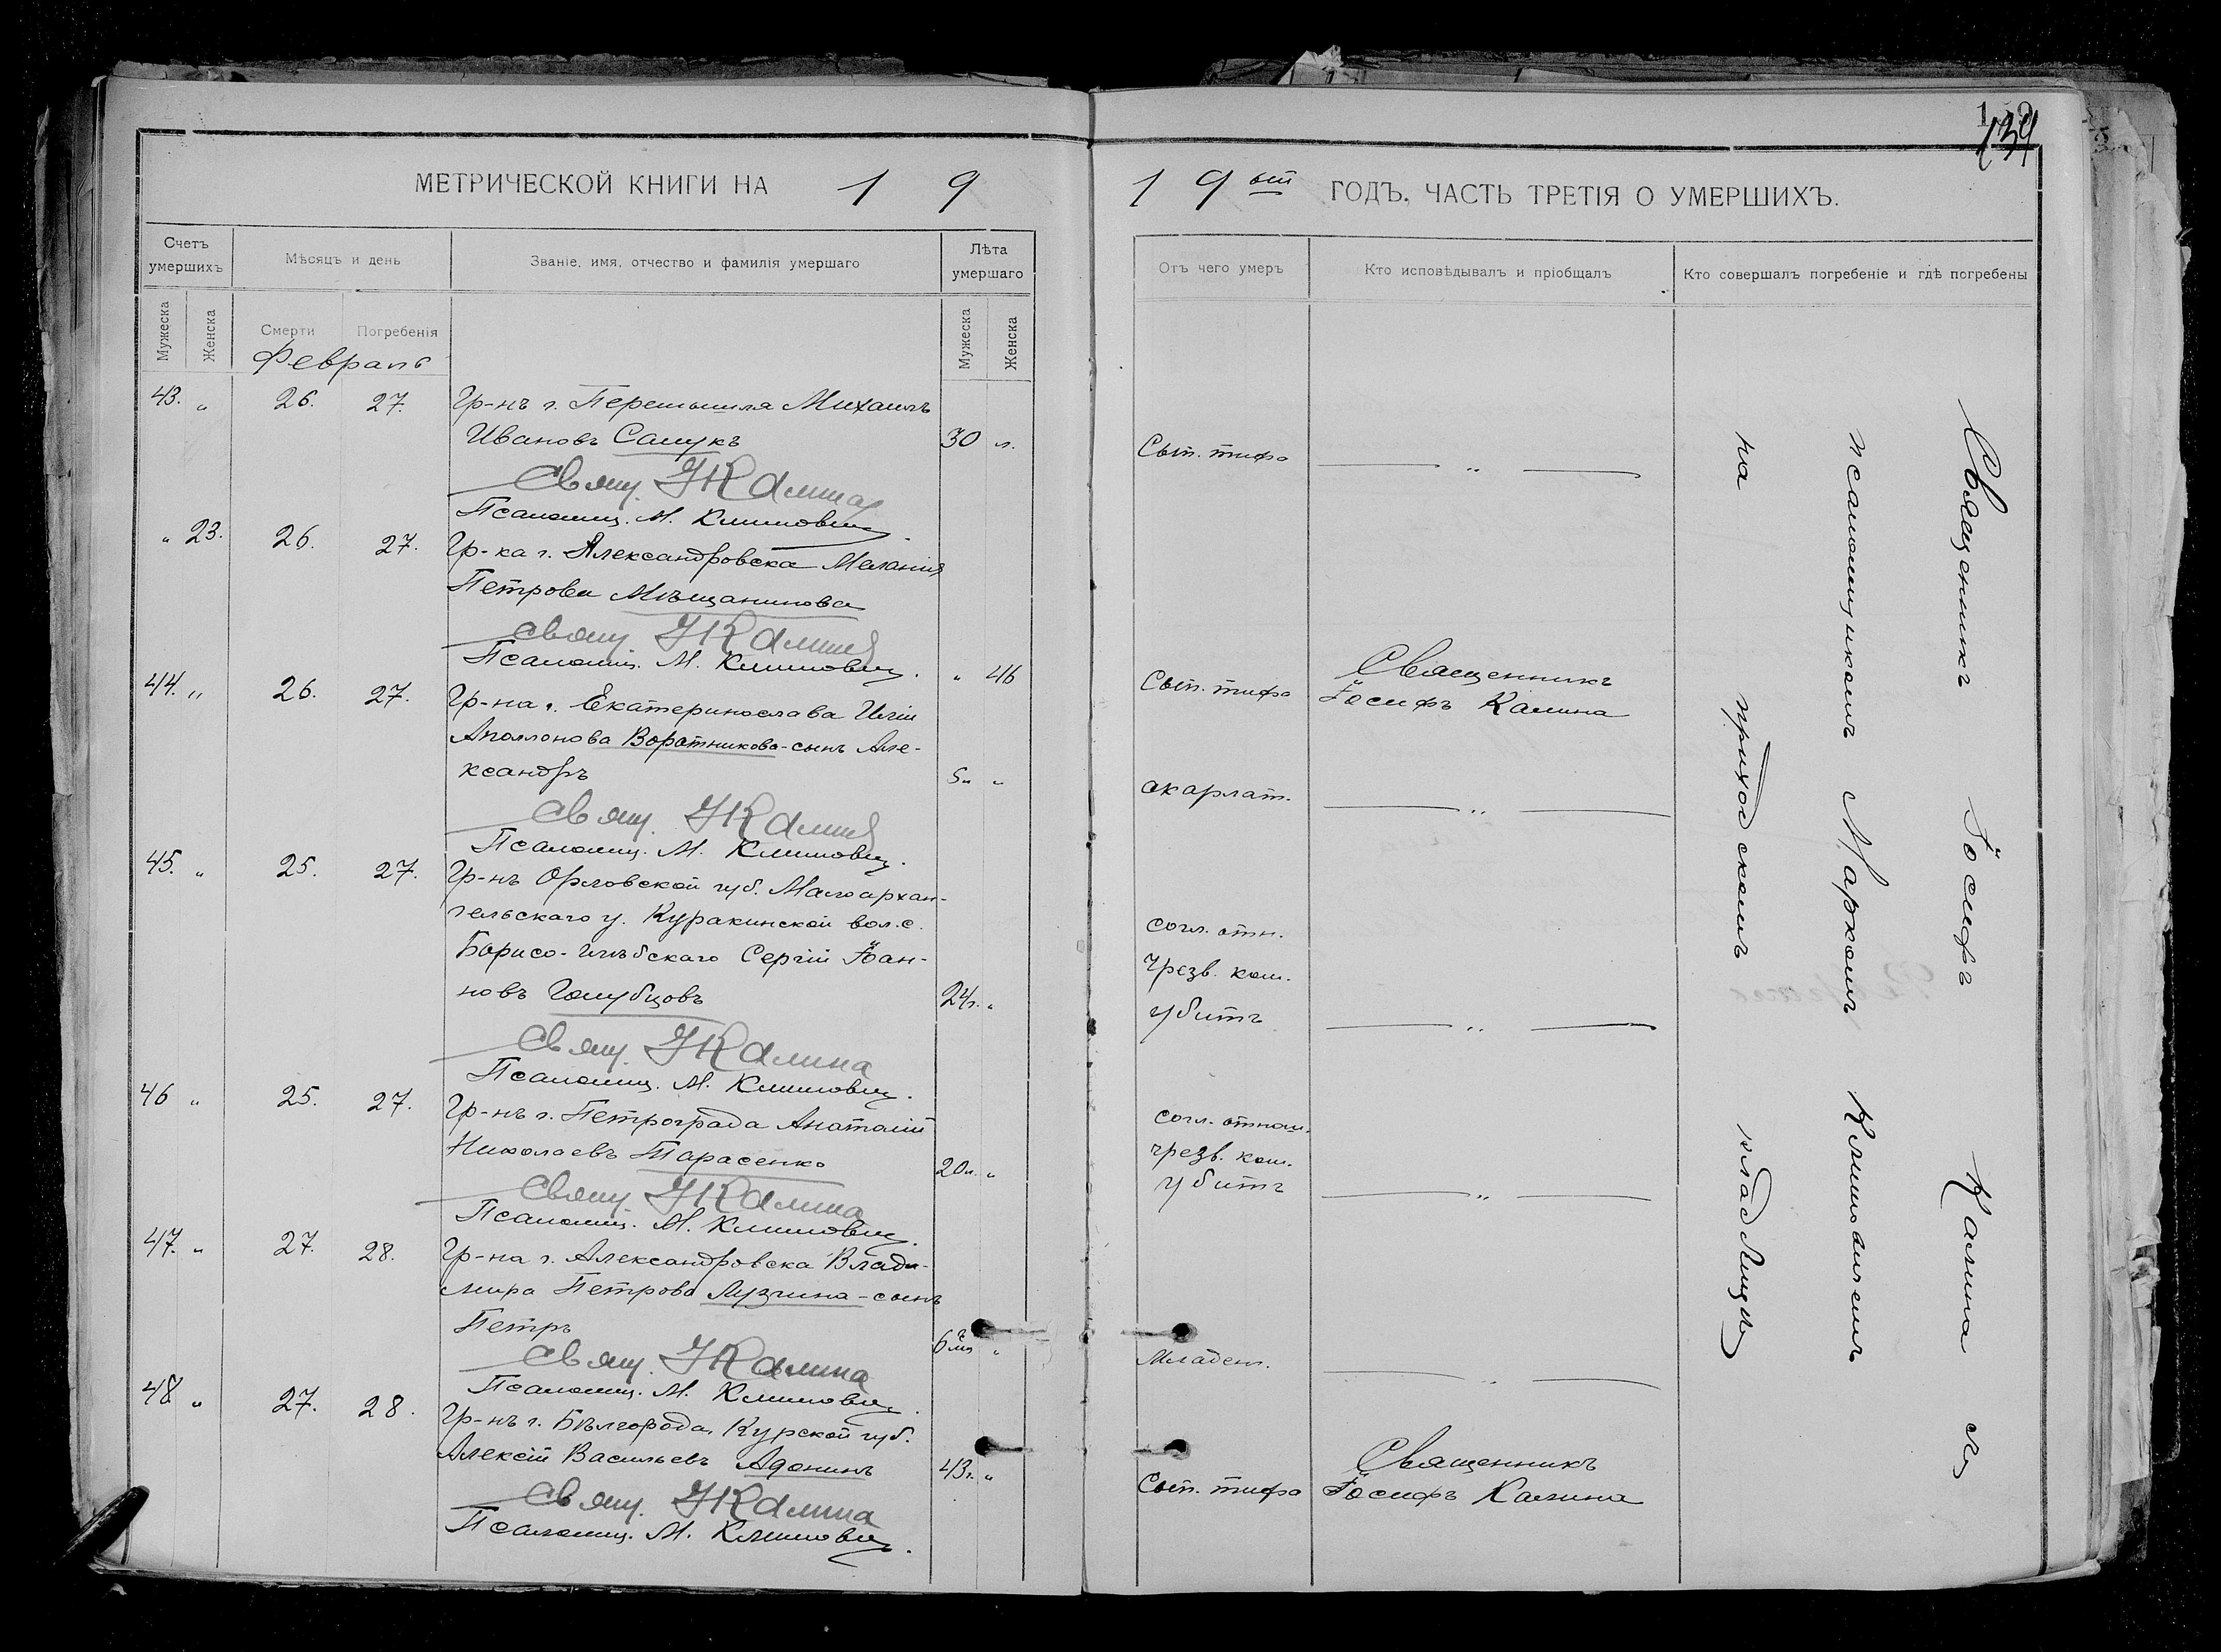 МЕТРИЧЕСКОЙ КНИГИ НА 1 9
Счетъ умершихъ
Мѣсяцъ и день
Званіе, имя, отчество и фамилія умершаго
Лѣта умершаго
Мужеска
Женска
Смерти
Погребенія
Мужеска
Женска
Февраль
43. " 26. 27. Гр-нъ г. Перемышля Михаилъ
Ивановъ Сащукъ 30 л.
Свящ. І Калина
Псаломщ. М. Климович
" 23. 26. 27. Гр-ка г. Александровска Меланія
Петрова Мѣщанинова
Свящ. І Калина
Псаломщ. М. Климович. " 46
44. " 26. 27. Гр-на г. Екатеринослава Иліи
Аполлонова Воротникова-сынъ Але-
ксандръ 5 л "
Свящ. І Калина
Псаломщ. М. Климович.
45. " 25. 27. Гр-нъ Орловской губ. Малоархан-
гельскаго у. Куракинской вол. с.
Борисо-Глѣбскаго Сергій Іоан-
новъ Голубцовъ 24 г. "
Свящ. І Калина
Псаломщ. М. Климович.
46 " 25. 27. Гр-нъ г. Петрограда Анатолій
Николаевъ Тарасенко 20 л. "
Свящ. І Калина
Псаломщ. М. Климович.
47. " 27. 28. Гр-на г. Александровска Влади-
мира Петрова Лузгина-сынъ
Петръ 6 "
Свящ. І Калина
Псаломщ. М. Климович.
48 " 27. 28. Гр-нъ г. Бѣлгорода, Курской губ.
Алексій Васильевъ Адонинъ 43 г. "
Свящ. І Калина
Псаломщ. М. Климович.
134
1 9 ый ГОДЪ, ЧАСТЬ ТРЕТІЯ О УМЕРШИХЪ.
Отъ чего умеръ
Кто исповѣдывалъ и пріобщалъ
Кто совершалъ погребеніе и гдѣ погребены
Сып. тифа — " —
Священникъ
Сып. тифа Іосифъ Калина
скарлат. — " —
согл. отн.
чрезв. ком.
убитъ — " —
согл. отнош.
чрезв. ком.
убитъ — " —
Младен. — " —
Священникъ
Сып. тифа Іосифъ Калина
Священникъ Іосифъ Калина съ
псаломщикомъ Маркомъ Климовичемъ
на приходскомъ кладбищѣ